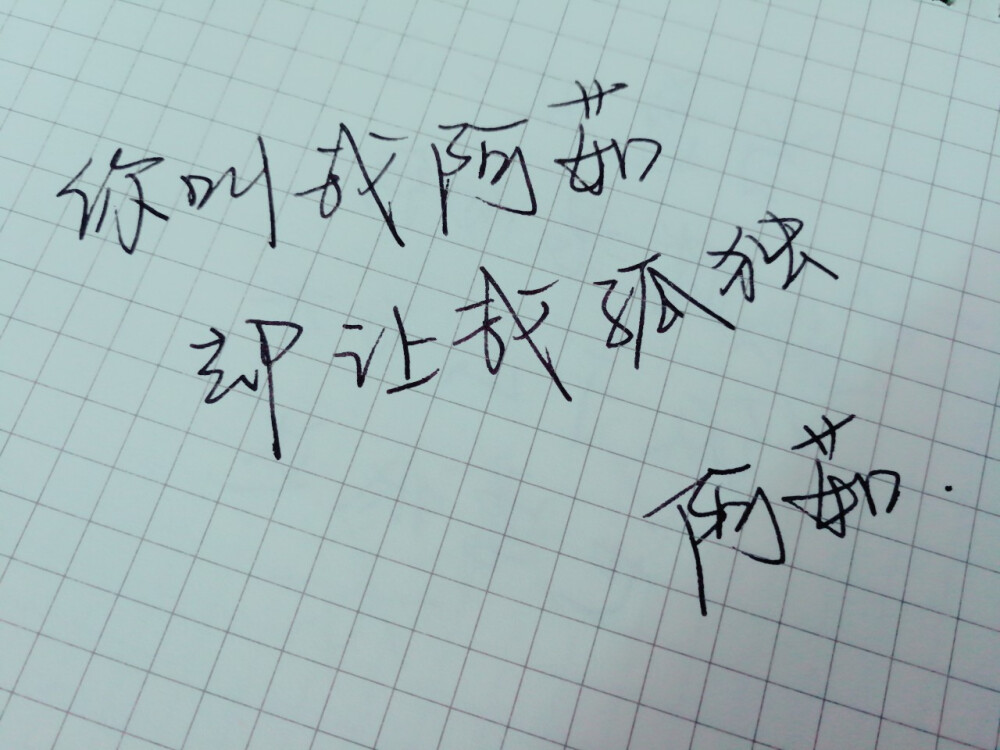 你叫我阿茹
却让我孤独
阿茹.